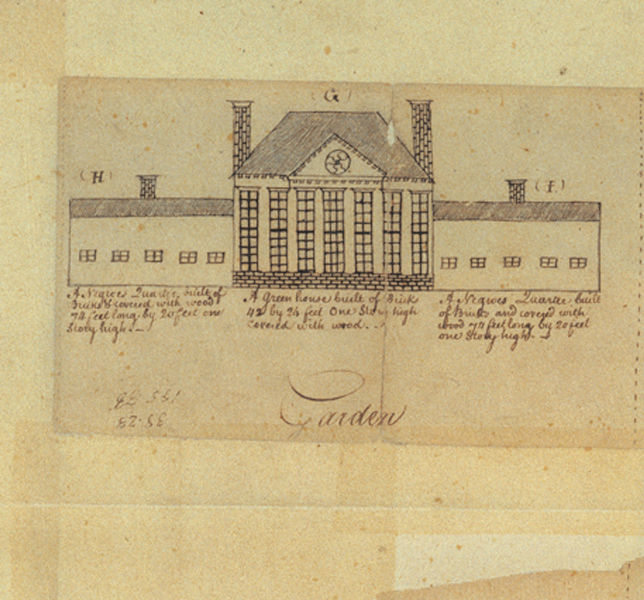 (G)
(H)
(I)
A Negroes Quarter, built of
Bricks & covered with wood
74 feet long by 20 feet one
Story high.
A Green house built of Brick
42 by 24 feet One Story high
Covered with wood.
A Negroes Quarter built
of Bricks and covered with
wood 74 feet long by 20 feet
one Story high.
Garden